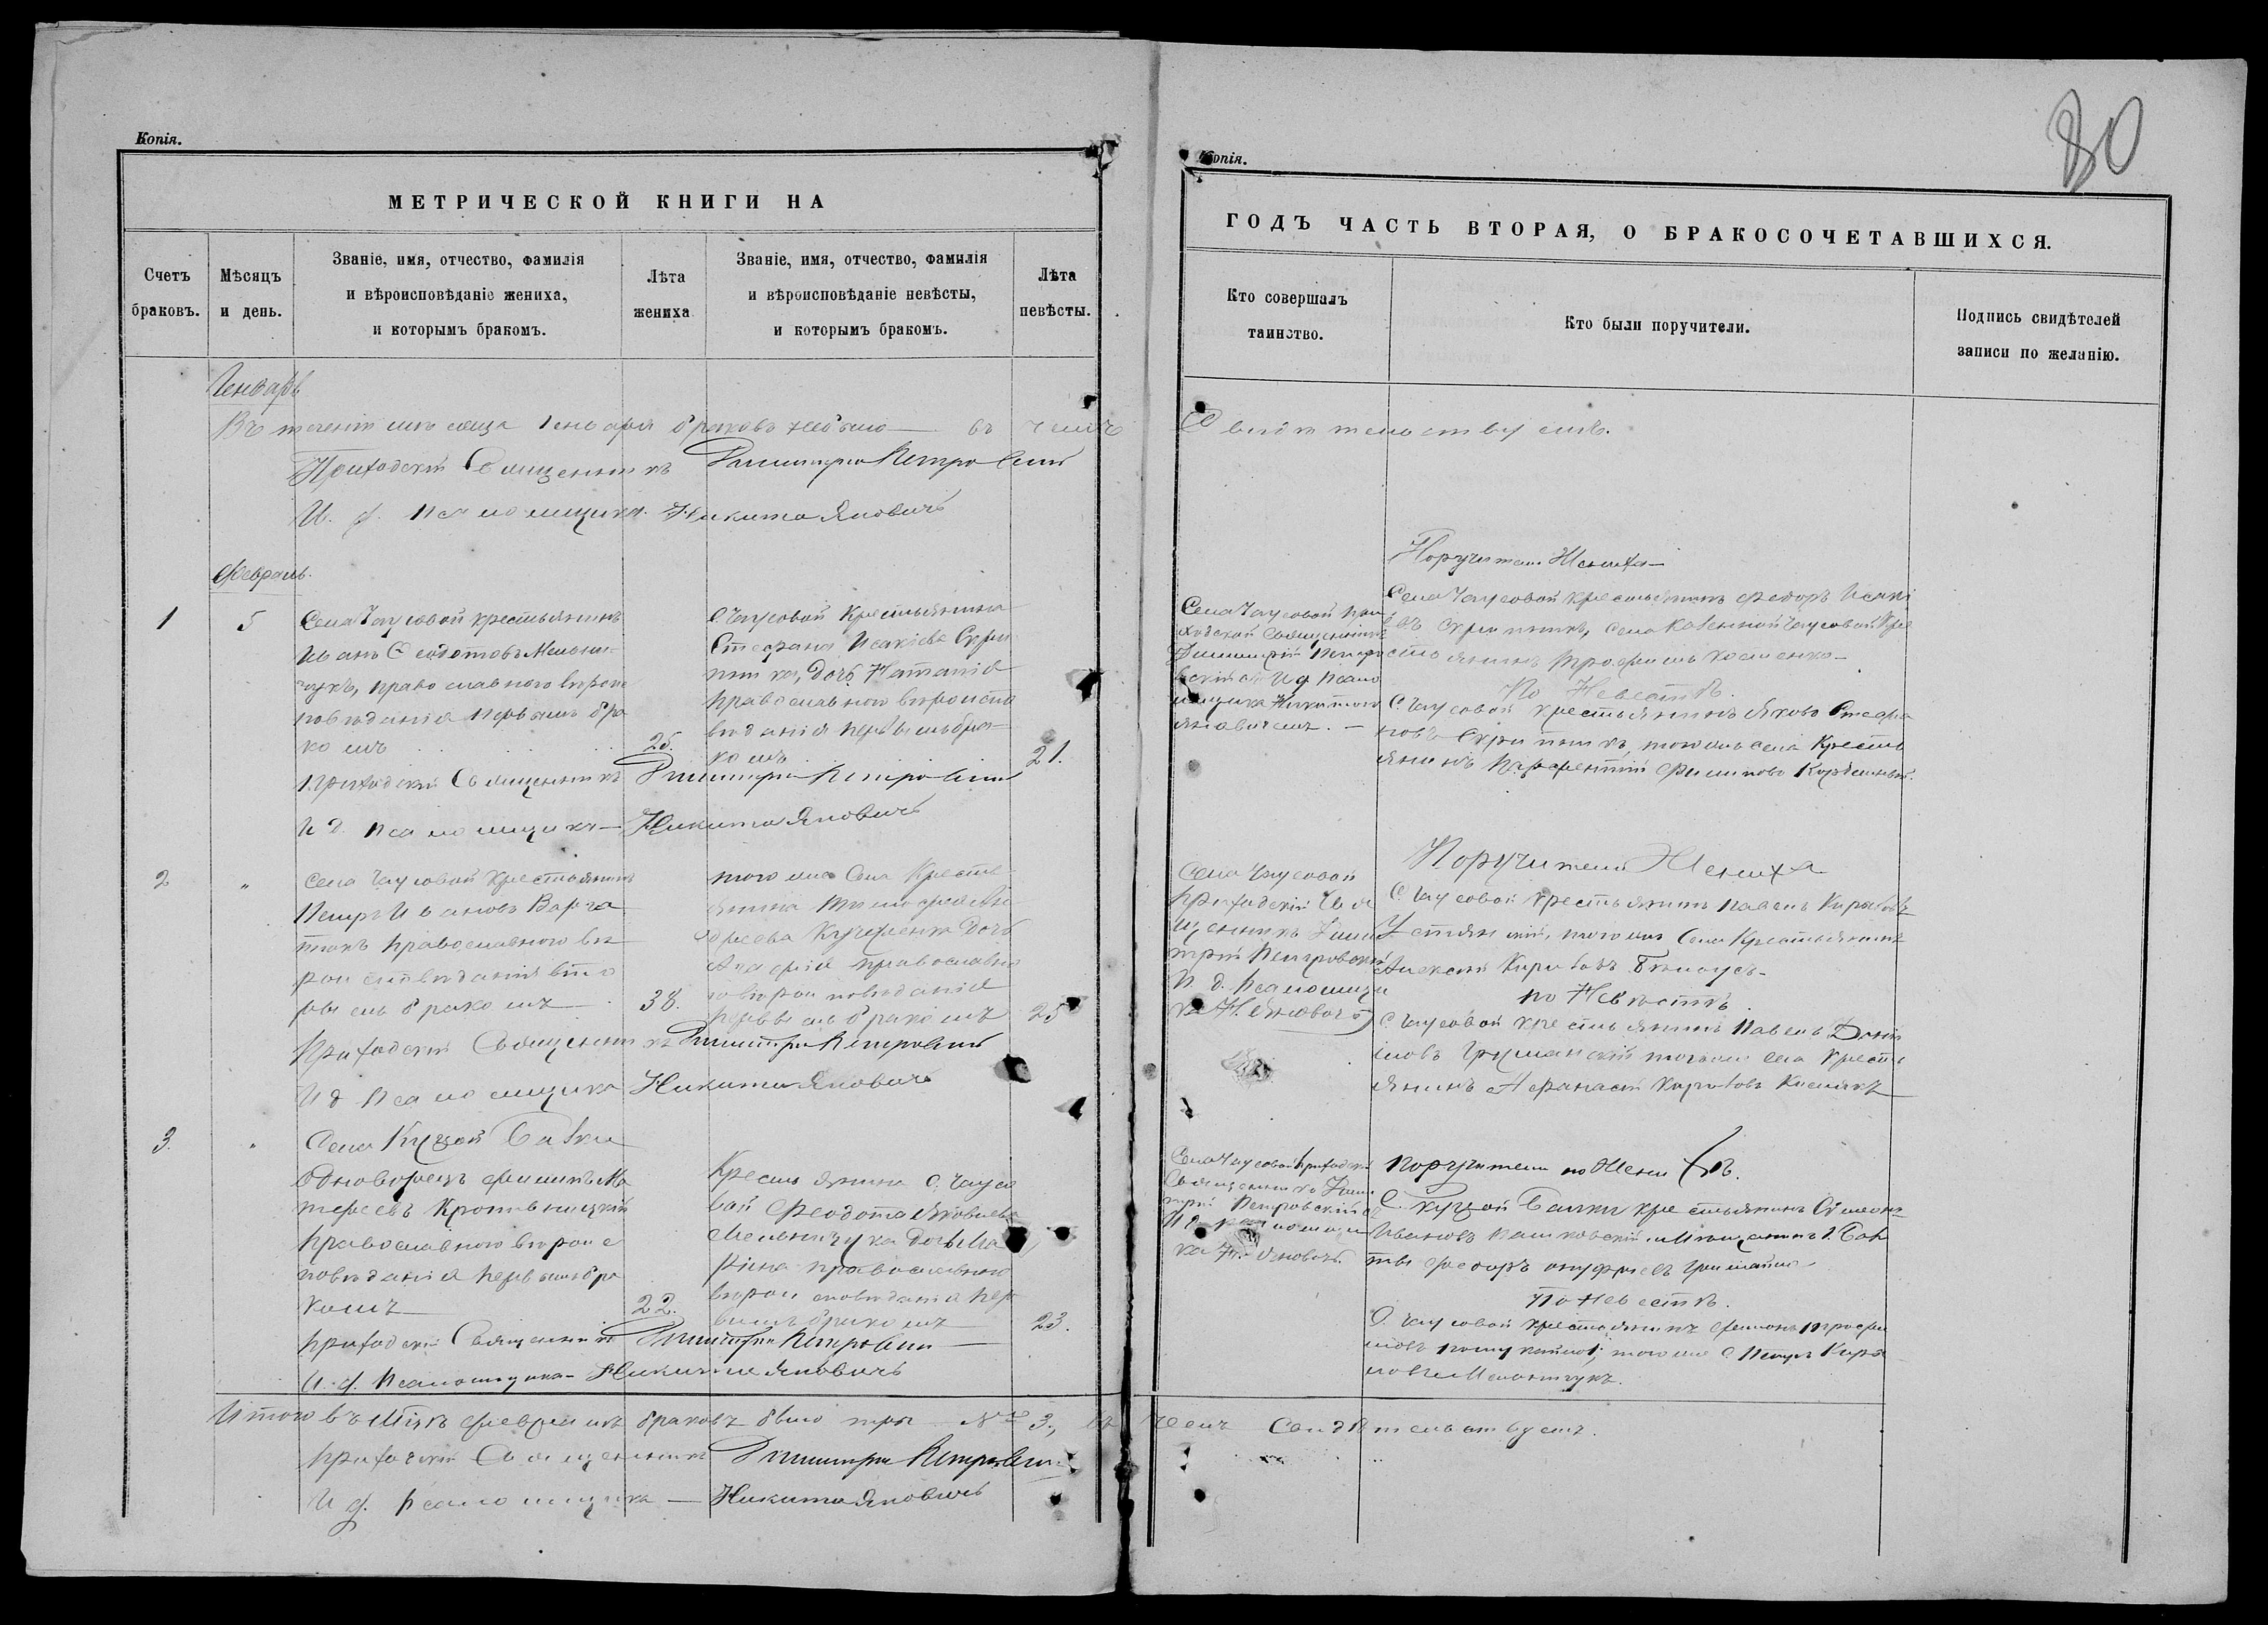 Копія.
МЕТРИЧЕСКОЙ КНИГИ НА
Счетъ браковъ.
Мѣсяцъ и день.
Званіе, имя, отчество, фамилія
и вѣроисповѣданіе жениха,
и которымъ бракомъ.
Лѣта жениха
Званіе, имя, отчество, фамилія
и вѣроисповѣданіе невѣсты,
и которымъ бракомъ.
Лѣта невѣсты.
Январь
Въ теченіи месяца Января браковъ небыло — въ чемъ
Приходскій Священникъ Димитрій Петровскій
И. д. псаломщика Никита Яновичъ
Февраль.
1
5
Села Чаусовой крестьянинъ
Иванъ Феодотовъ Мельни-
чукъ, православного вероис
поведанія первымъ бра
комъ
25.
С. Чаусовой Крестьянина
Стефана Исакіева Скри
пника, дочь Наталія
православного вероиспо
веданія первымъ бра-
комъ
21.
Приходскій Священникъ Димитрій Петровскій
И д. псаломщика — Никита Яновичъ
2
"
Села Чаусовой Крестьянинъ
Петръ Ивановъ
православного ве
роисповеданія вто
рымъ бракомъ
38.
того же Села Кресть
янина Тимофея
дочь
Агафія православно
го вероисповеданія
первымъ бракомъ
25
Приходскій Священникъ Димитрій Петровскій
И д Псаломщика Никита Яновичъ
3.
"
Села Куцой Балки
Одноворецъ Филипъ Ма
тфеевъ Кропивницкій
православного вероис
поведанія первымъ бра
комъ
22.
Крестьянина С. Чаусо
вой Феодота Яковлева
Мельничука дочь Ма
рина православного
вероисповеданія пер
вымъ бракомъ
23.
приходскій Священникъ Димитрій Петровскій
И. д. Псаломщика — Никита Яновичъ
Итого въ Мцѣ Февралѣ браковъ было три № 3, въ
приходскій Священникъ Димитрій Петровскій
И д. псаломщика — Никита Яновичъ
80
Копія.
ГОДЪ ЧАСТЬ ВТОРАЯ, О БРАКОСОЧЕТАВШИХСЯ.
Кто совершалъ
таинство.
Кто были поручители.
Подпись свидѣтелей
записи по желанію.
Свидетельствуемъ.
Села Чаусовой при
ходской Священникъ
Димитрій Петро
вскій съ И д Псало
мщика Никитою
Яновичемъ. —
Поручители Жениха —
Села Чаусовой крестьянинъ Федоръ Исакі
евъ Скрипникъ, села Казенной Чаусовой Кре
стьянинъ Трофимъ Костенко —
По Невестѣ.
С. Чаусовой крестьянинъ Яковъ Стефа
новъ Скрипникъ, того же села Кресть
янинъ Парфентій Филиповъ
Села Чаусовой
приходскій Свя
щенникъ Дими
трій Петровскій
И. д. Псаломщи
ка Н. Яновичъ
Поручители Жениха
С Чаусовой крестьянинъ Павелъ Кириловъ
того же Села Крестьянинъ
Алексей Кириловъ Білоусъ —
по Невѣстѣ.
С. Чаусовой крестьянинъ Павелъ Дани
ловъ того же села Кресть
янинъ Афанасій Кириловъ
Села Чаусовой приходскій
Священникъ Дими
трій Петровскій
И д псаломщи
ка Н. Яновичъ.
Поручители по Жени хѣ.
С. Куцой Балки крестьянинъ Симеонъ
Ивановъ
Федоръ Онуфріевъ
По Невестѣ.
С. Чаусовой крестьянинъ Филимонъ Трофи
мовъ того же С Петръ Кири
ловъ Мельничукъ.
чемъ Свидѣтельствуемъ.